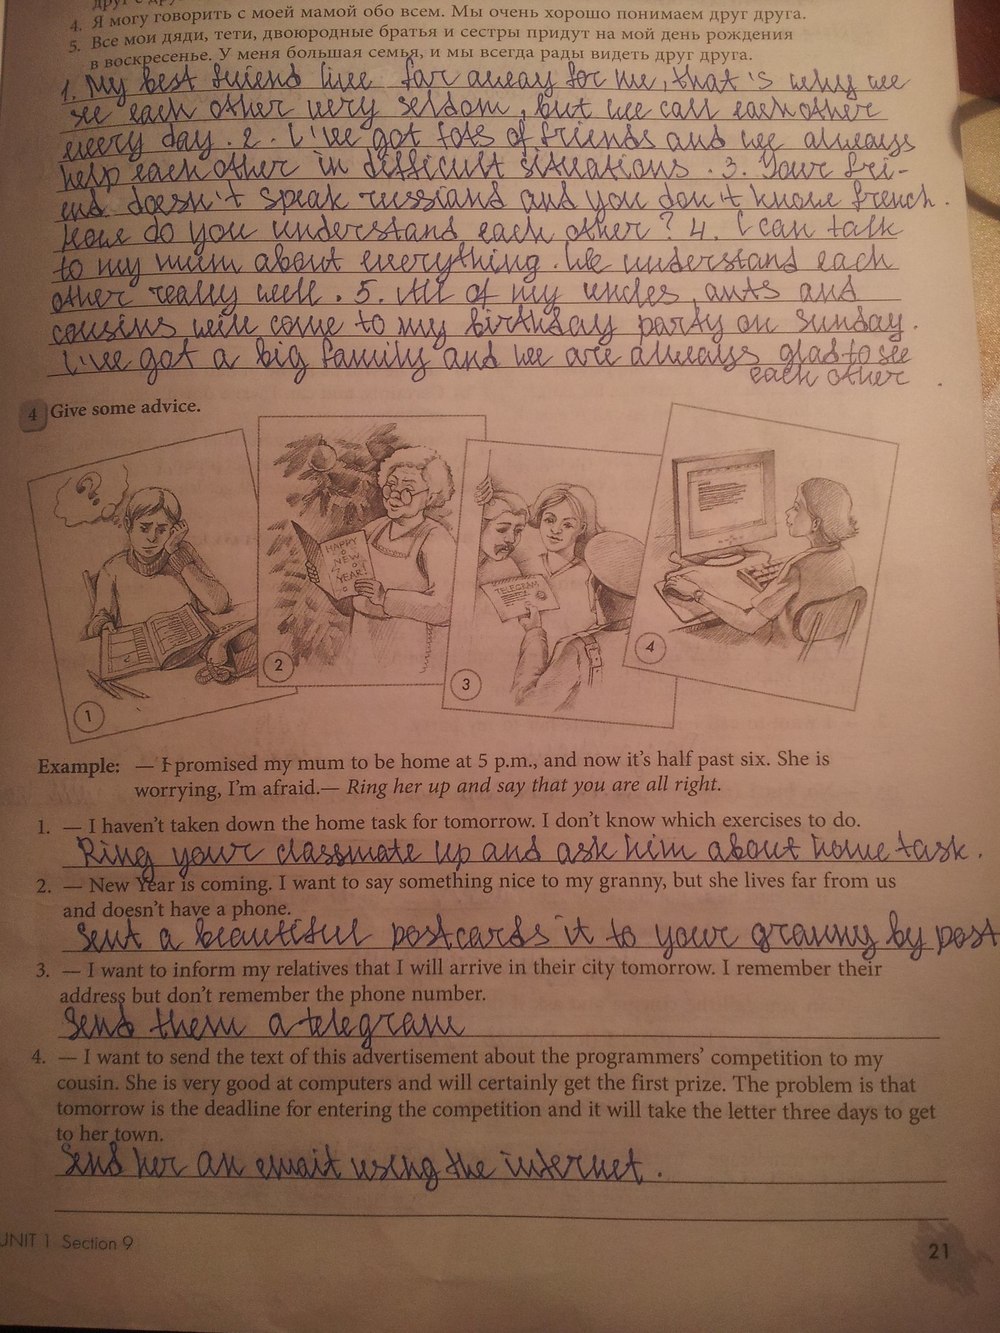 4. Я могу говорить с моей мамой обо всем. Мы очень хорошо понимаем друг друга.
5. Все мои дяди, тети, двоюродные братья и сестры придут на мой день рождения
в воскресенье. У меня большая семья, и мы всегда рады видеть друг друга.
1. My best friend live far away for me, that's why we
see each other very seldom, but we call each other
every day. 2. I've got lots of friends and we always
help each other in difficult situations. 3. Your fri-
end doesn't speak russiand and you don't know french.
How do you understand each other? 4. I can talk
to my mum about everything. We understand each
other really well. 5. All of my uncles, ants and
cousins will come to my birthday party on Sunday.
I've got a big family and we are always glad to see
each other.
4 Give some advice.
HAPPY
NEW
YEAR!
TELEGRAM
1
2
3
4
Example: — I promised my mum to be home at 5 p.m., and now it's half past six. She is
worrying, I'm afraid.— Ring her up and say that you are all right.
1. — I haven't taken down the home task for tomorrow. I don't know which exercises to do.
Ring your classmate up and ask him about home task.
2. — New Year is coming. I want to say something nice to my granny, but she lives far from us
and doesn't have a phone.
Sent a beautiful postcards it to your granny by post
3. — I want to inform my relatives that I will arrive in their city tomorrow. I remember their
address but don't remember the phone number.
Send them a telegram
4. — I want to send the text of this advertisement about the programmers' competition to my
cousin. She is very good at computers and will certainly get the first prize. The problem is that
tomorrow is the deadline for entering the competition and it will take the letter three days to get
to her town.
Send her an email using the internet.
UNIT 1 Section 9
21